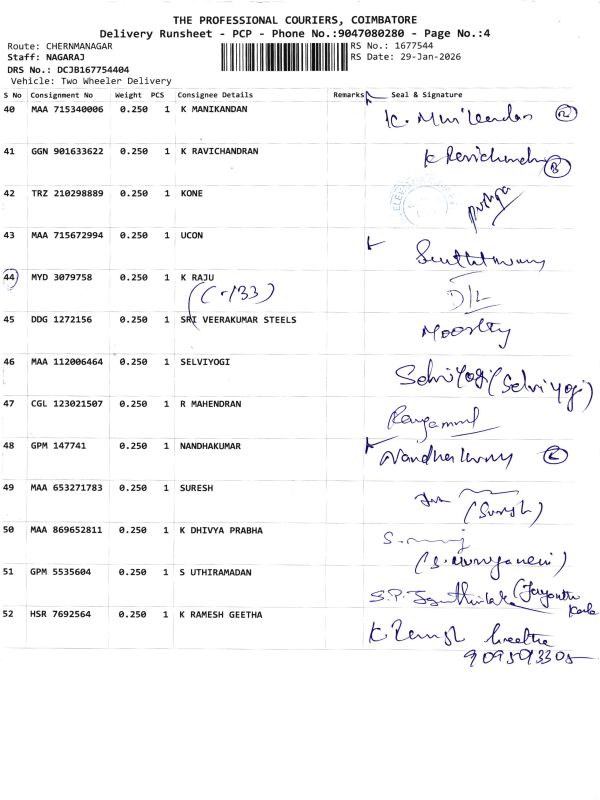 THE PROFESSIONAL COURIERS, COIMBATORE
Delivery Runsheet - PCP - Phone No.:9047080280 - Page No.:4
Route: CHERNMANAGAR RS No.: 1677544
Staff: NAGARAJ RS Date: 29-Jan-2026
DRS No.: DCJB167754404
Vehicle: Two Wheeler Delivery
S No Consignment No Weight PCS Consignee Details Remarks Seal & Signature
40 MAA 715340006 0.250 1 K MANIKANDAN
41 GGN 901633622 0.250 1 K RAVICHANDRAN
42 TRZ 210298889 0.250 1 KONE
43 MAA 715672994 0.250 1 UCON
44 MYD 3079758 0.250 1 K RAJU D/L
(C-133)
45 DDG 1272156 0.250 1 SRI VEERAKUMAR STEELS
46 MAA 112006464 0.250 1 SELVIYOGI SelviYogi (Selviyogi)
47 CGL 123021507 0.250 1 R MAHENDRAN
48 GPM 147741 0.250 1 NANDHAKUMAR
49 MAA 653271783 0.250 1 SURESH
(Suresh)
50 MAA 869652811 0.250 1 K DHIVYA PRABHA
51 GPM 5535604 0.250 1 S UTHIRAMADAN
52 HSR 7692564 0.250 1 K RAMESH GEETHA K Ramesh Geetha